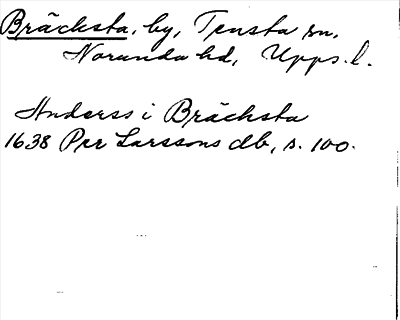 Bräcksta, by, Tensta sn,
Norunda hd, Upps. l.
Anderss i Bräcksta
1638 Per Larssons db, s. 100.